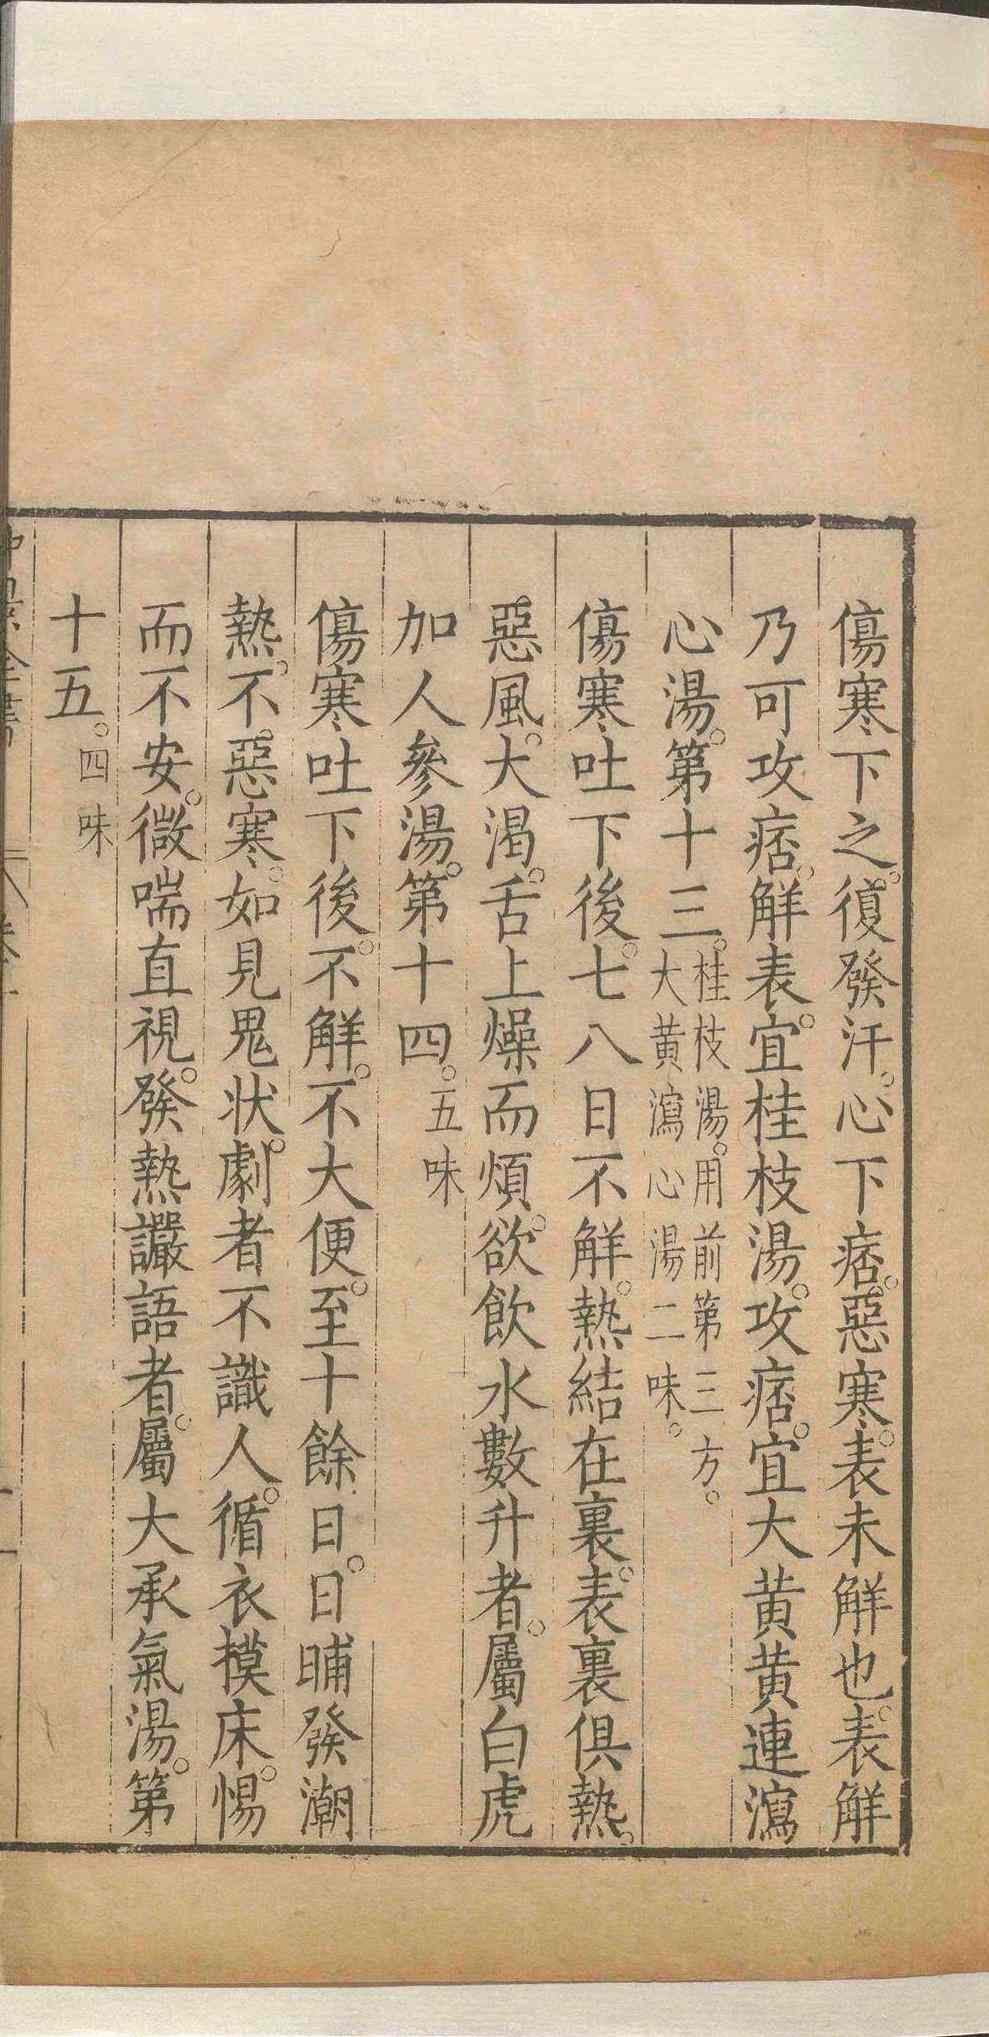 傷寒下之。復發汗。心下痞。惡寒。表未解也。表解
乃可攻痞。解表。宜桂枝湯。攻痞。宜大黃黃連瀉
心湯。第十三。桂枝湯。用前第三方。
大黃瀉心湯二味。
傷寒吐下後。七八日不解。熱結在裏。表裏俱熱。
惡風。大渴。舌上燥而煩。欲飲水數升者。屬白虎
加人參湯。第十四。五味
傷寒吐下後。不解。不大便。至十餘日。日晡發潮
熱。不惡寒。如見鬼狀。劇者不識人。循衣模床。惕
而不安。微喘直視。發熱讝語者。屬大承氣湯。第
十五。四味